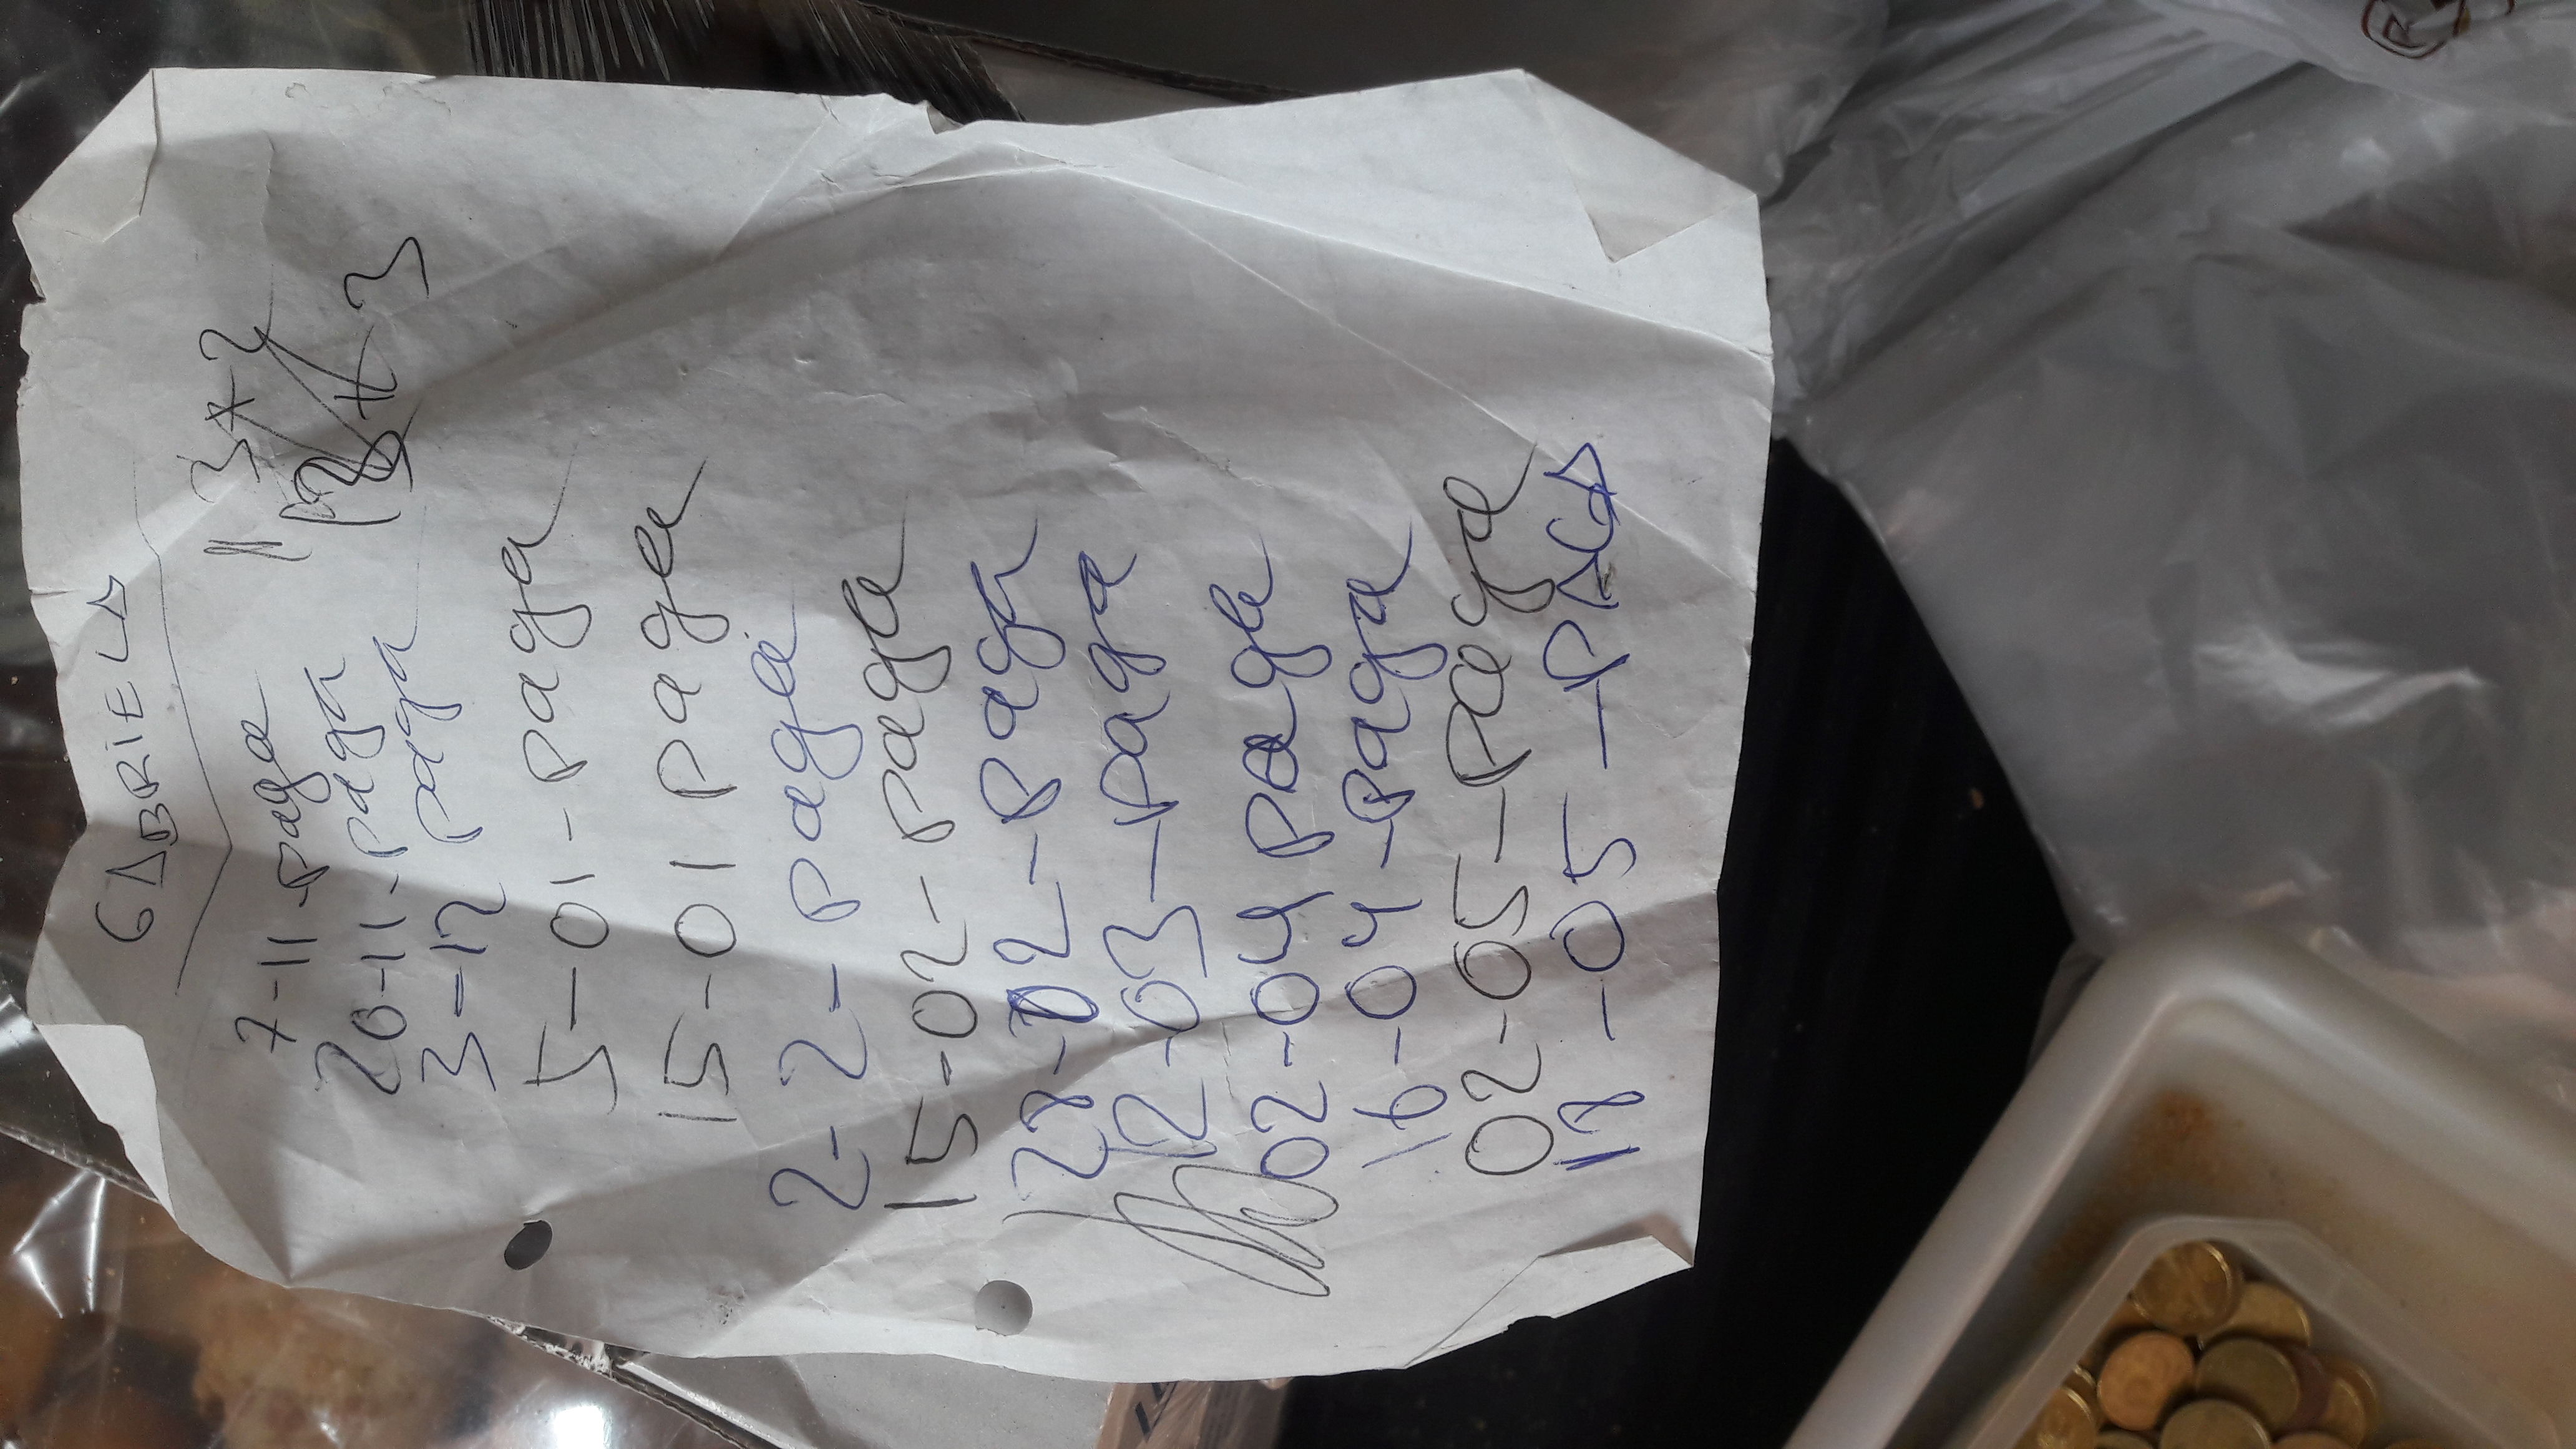 GABRIELA
7-11-paga
20-11-paga
3-12 paga
5-01-paga
15-01 paga
2-2-paga
15-02-paga
27-02-paga
12-03-paga
02-04 paga
16-04-paga
02-05-paga
17-05-PAGA
3+2